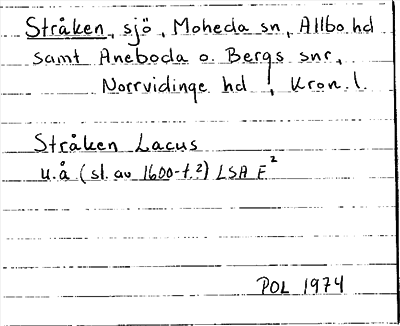 Stråken, sjö, Moheda sn, Allbo hd
samt Aneboda o. Bergs snr,
Norrvidinge hd, Kron. l.
Stråken Lacus
u.å (sl. av 1600-t.?) LSA E²
POL 1974